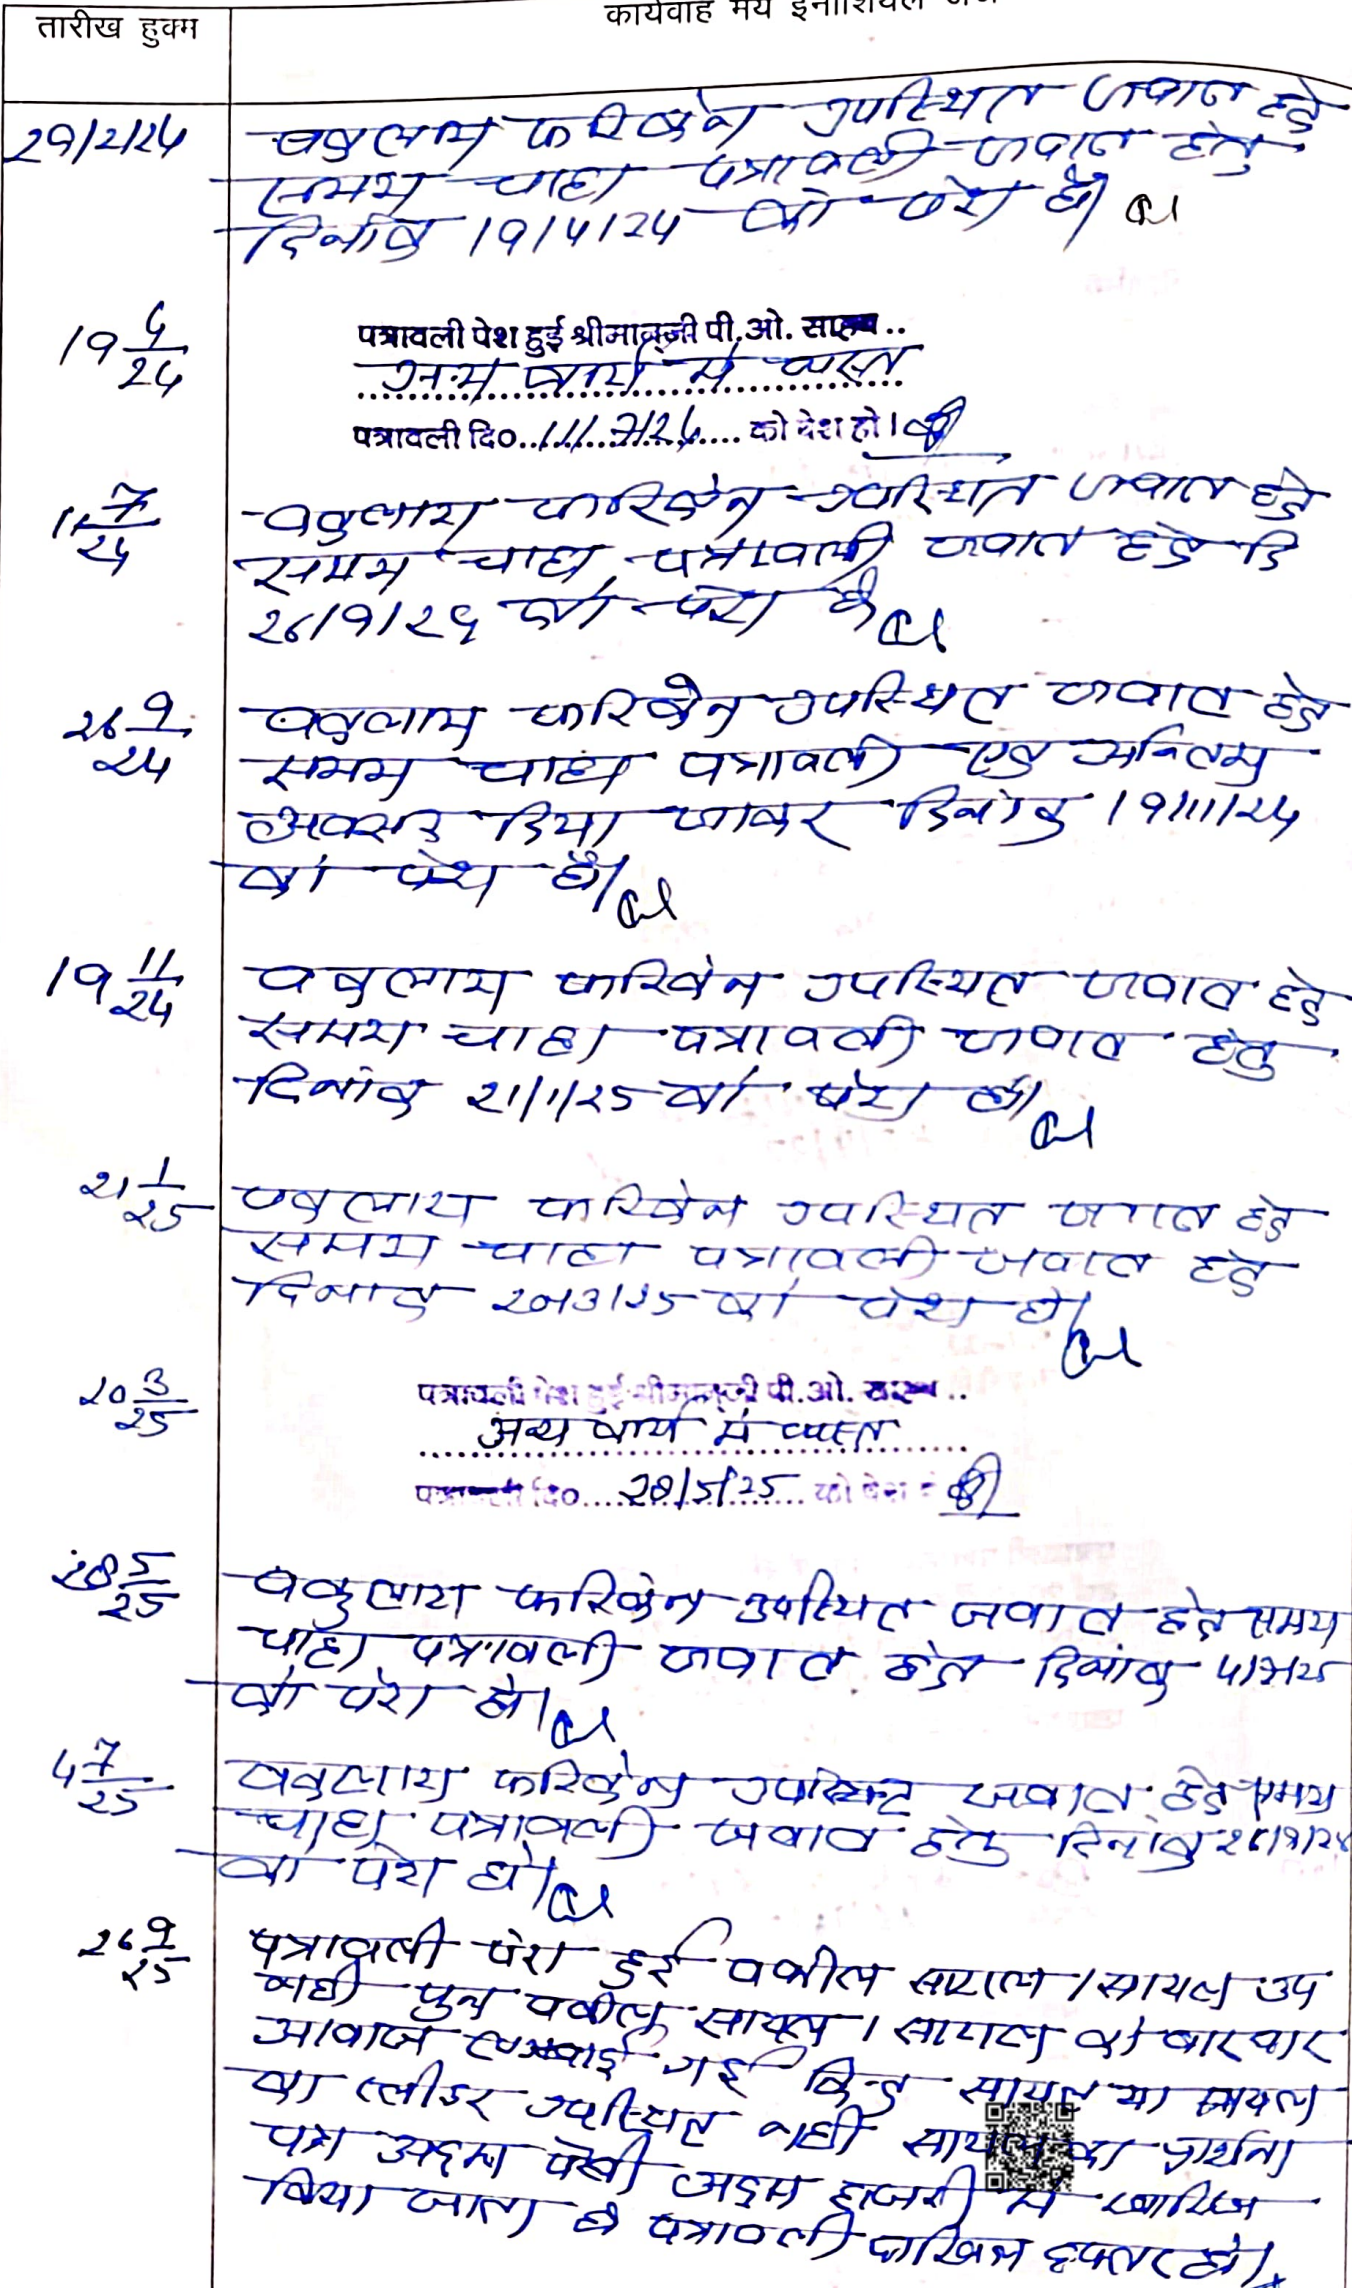 तारीख हुक्म
कार्यवाह मय इनीशियल जज
29/2/24
वकुलाय फरिकेन उपस्थित जवाब हेतु
समय चाहा पत्रावली जवाब हेतु
दिनांक 19/4/24 को पेश हो।
19 4/24
पत्रावली पेश हुई श्रीमानजी पी.ओ. साहब..
अन्य कार्य में व्यस्त
पत्रावली दि०..11/7/24.... को पेश हो।
11 7/24
वकुलाय फरिकेन उपस्थित जवाब हेतु
समय चाहा पत्रावली जवाब हेतु दि
26/9/24 को पेश हो
26 9/24
वकुलाय फरिकेन उपस्थित जवाब हेतु
समय चाहा पत्रावली एक अन्तिम
अवसर दिया जाकर दिनांक 19/11/24
को पेश हो।
19 11/24
वकुलाय फरिकेन उपस्थित जवाब हेतु
समय चाहा पत्रावली जवाब हेतु
दिनांक 21/1/25 को पेश हो।
21 1/25
वकुलाय फरिकेन उपस्थित जवाब हेतु
समय चाहा पत्रावली जवाब हेतु
दिनांक 20/3/25 को पेश हो।
20 3/25
पत्रावली पेश हुई श्रीमानजी पी.ओ. साहब ..
अन्य कार्य में व्यस्त
पत्रावली दि०....28/5/25.... को पेश हो
28 5/25
वकुलाय फरिकेन उपस्थित जवाब हेतु समय
चाहा पत्रावली जवाब हेतु दिनांक 4/7/25
को पेश हो।
4 7/25
वकुलाय फरिकेन उपस्थित जवाब हेतु समय
चाहा पत्रावली जवाब हेतु दिनांक 26/9/25
को पेश हो।
26 9/25
पत्रावली पेश हुई वकील सायल / सायल उप
नहीं पुन वकील सायल / सायल को बारबार
आवाज लगवाई गई किन्तु सायल या सायल
का प्लीडर उपस्थित नहीं सायल का प्रार्थना
पत्र अदम पैरवी अदम हाजरी में खारिज
किया जाता है पत्रावली दाखिल दफ्तर हो।